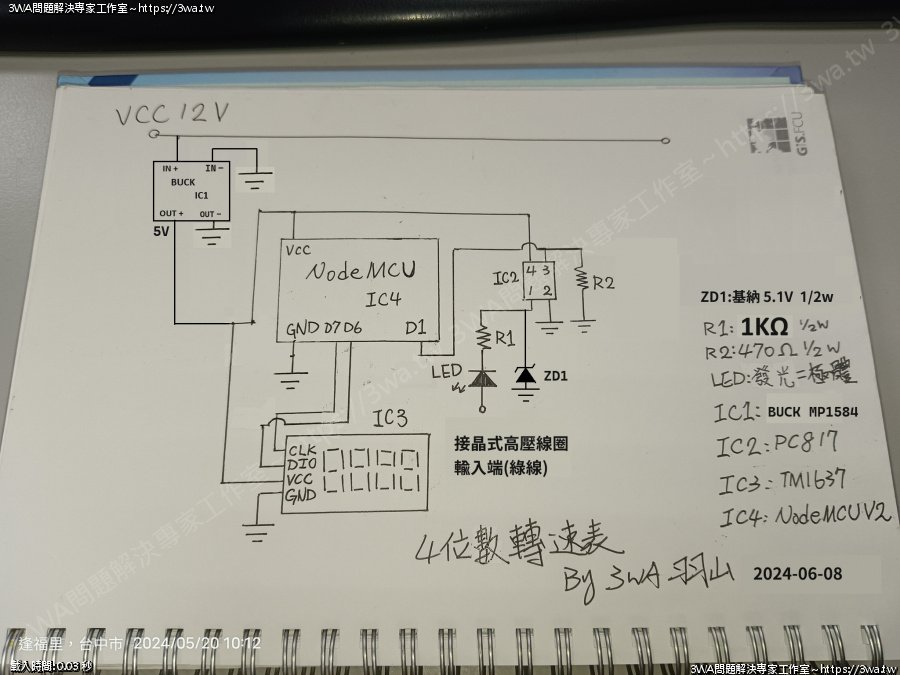 3WA問題解決專家工作室~https://3wa.tw
VCC 12V
GIS.FCU
IN+ IN-
BUCK
IC1
OUT+ OUT-
5V
VCC
NodeMCU
IC4
GND D7 D6 D1
IC2
4 3
1 2
R2
R1
LED
ZD1
ZD1:基納 5.1V 1/2w
R1: 1KΩ 1/2W
R2:470Ω 1/2W
LED:發光二極體
IC1: BUCK MP1584
IC2:PC817
IC3:TM1637
IC4:NodeMCUV2
IC3
CLK
DIO
VCC
GND
接晶式高壓線圈
輸入端(綠線)
4位數轉速表
By 3WA 羽山
2024-06-08
3WA問題解決專家工作室~https://3wa.tw
逢福里,台中市 2024/05/20 10:12
載入時間:0.03 秒
3WA問題解決專家工作室~https://3wa.tw